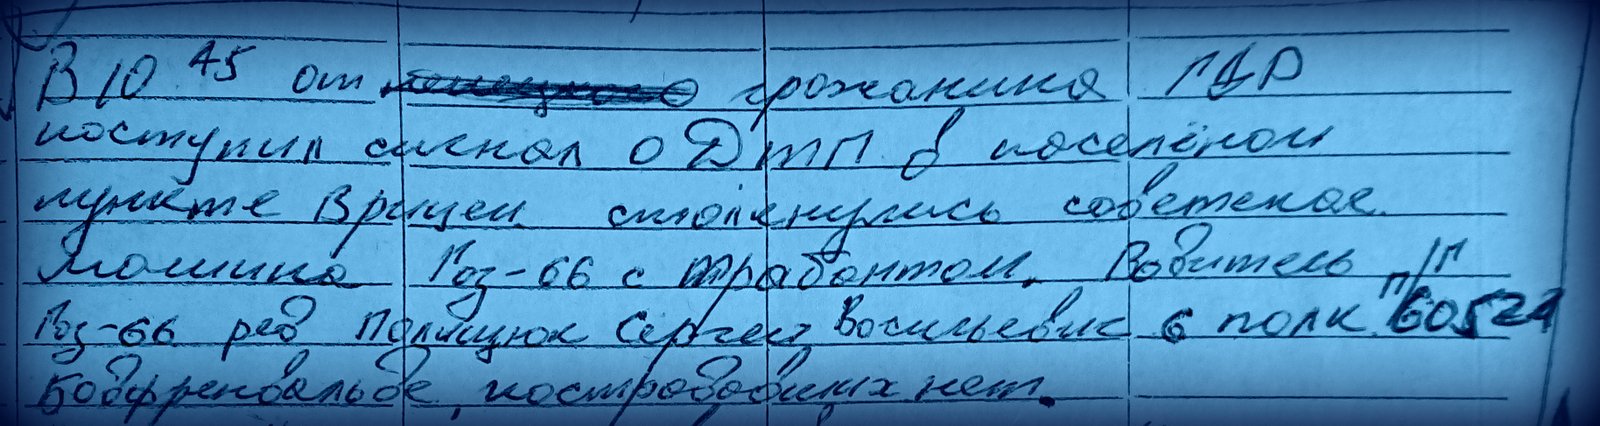 В 10 45 от гражданина ГДР
поступил сигнал о ДТП в населёном
пункте Врицен столкнулись советская
машина Газ-66 с трабантом. Водитель
Газ-66 ряд Полищюк Сергей Васильевич 6 полк п/п 60524
Бадфренвальде, пострадавших нет.